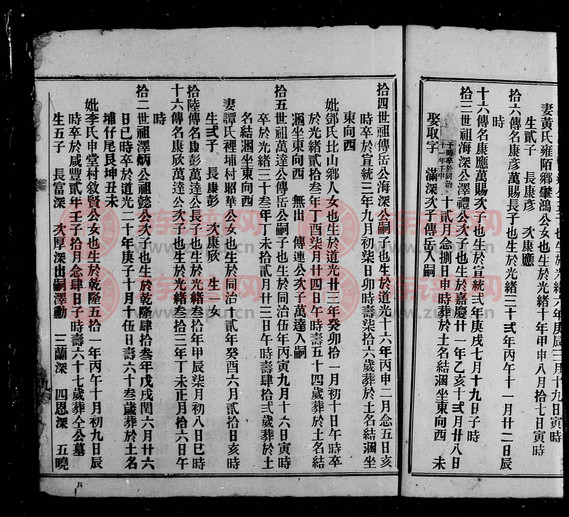 妻黃氏雍陌鄉肇鴻公女也生於光緒六年庚辰
生貳子 長康彥 次康應
十六傳名康彥萬賜長子也生於光緒十年甲申八月拾七日寅時
十六傳名康應萬賜次子也生於光緒三十弍年丙午十一月廿二日辰
拾三世祖海深公澤禮公次子也生於嘉慶廿一年乙亥十弍月廿八日
十弍月念捌日申時葬於土名結涃坐東向西 未
娶取字 滿深次子傳岳入嗣
拾四世祖傳岳公海深公嗣子也生於道光十六年丙申二月念五日亥
時卒於宣統三年九月初柒日卯時壽柒拾六歲葬於土名結涃坐
東向西
妣鄧氏北山鄉人女也生於道光廿三年癸卯拾一月初十日午時卒
於光緒貳拾叁年丁酉柒月廿四日午時壽五十四歲葬於土名結
涃坐東向西 無出 傳連公次子萬達入嗣
拾五世祖萬達公傳岳公嗣子也生於同治伍年丙寅九月十六日寅時
卒於光緒三十三年丁未拾貳月廿三日午時壽肆拾弍歲葬於土
名結涃東向西
妻譚氏裡埔村昭華公女也生於同治十貳年癸酉六月貳拾日亥時
生弍子 長康彭 次康欣 生一女
拾陸傳名康彭萬達公長子也生於光緒叁拾年甲辰柒月初八日巳時
十六傳名康欣萬達公次子也生於光緒三十三年丁未正月拾六日午
拾二世祖澤炳公祖懿公次子也生於乾隆肆拾叁年戊戌閏六月廿六
日巳時卒於道光二十年庚子十月十伍日壽六十叁歲葬於土名
埔仔尾艮坤丑未
妣李氏申堂村敘賢公女也生於乾隆五拾一年丙午十月初九日辰
時卒於咸豐貳年壬子拾月念肆日子時壽六十七歲葬仝公墓
生五子 長富深 次厚深出嗣澤勳 三蘭深 四恩深 五曉